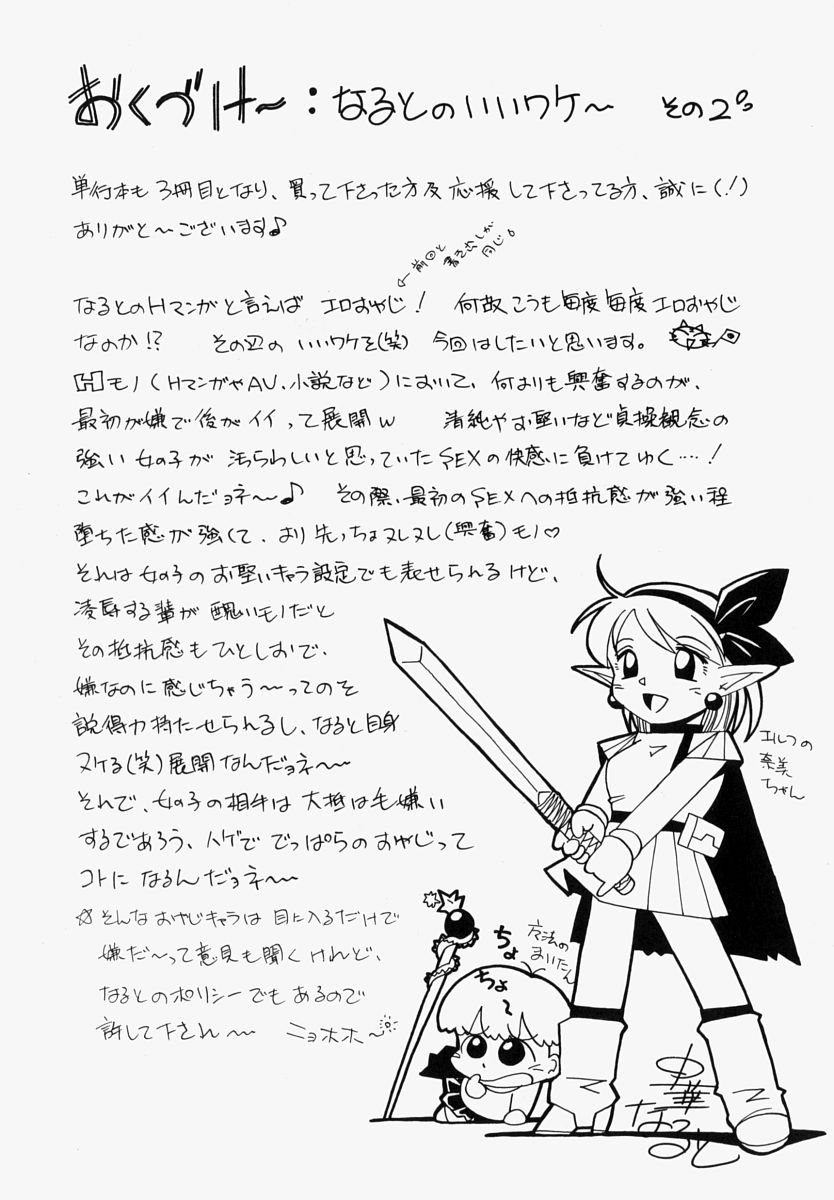 おくづけ〜：なるとのいいワケ〜 その2
単行本も3冊目となり、買って下さった方及応援して下さってる方、誠に(!)
ありがと〜ございます♪
←前回と
書き出しが
同じ。
なるとのHマンガと言えば エロおやじ! 何故こうも毎度毎度エロおやじ
なのか!? その辺のいいワケを(笑) 今回はしたいと思います。
Hモノ(HマンガやAV、小説など)において、何よりも興奮するのが、
最初が嫌で後がイイって展開w 清純やお堅いなど貞操観念の
強い女の子が汚らわしいと思っていたSEXの快感に負けてゆく…!
これがイイんだョネ〜♪ その際、最初のSEXへの抵抗感が強い程
堕ちた感が強くて、より先っちょヌレヌレ(興奮)モノ♡
それは女の子のお堅いキャラ設定でも表せられるけど、
凌辱する輩が醜いモノだと
その抵抗感もひとしおで、
嫌なのに感じちゃう〜ってのを
説得力持たせられるし、なると自身
ヌケる(笑)展開なんだョネ〜〜
それで、女の子の相手は大抵は毛嫌い
するであろう、ハゲで でっぱらのおやじって
コトになるんだョネ〜〜
☆そんなおやじキャラは目に入るだけで
嫌だ〜って意見も聞くけれど、
なるとのポリシーでもあるので
許して下され〜〜 ニョホホ〜
エルフの
奈美
ちゃん
方法の
まいたん
ちょ
ちょ〜
中華
なると